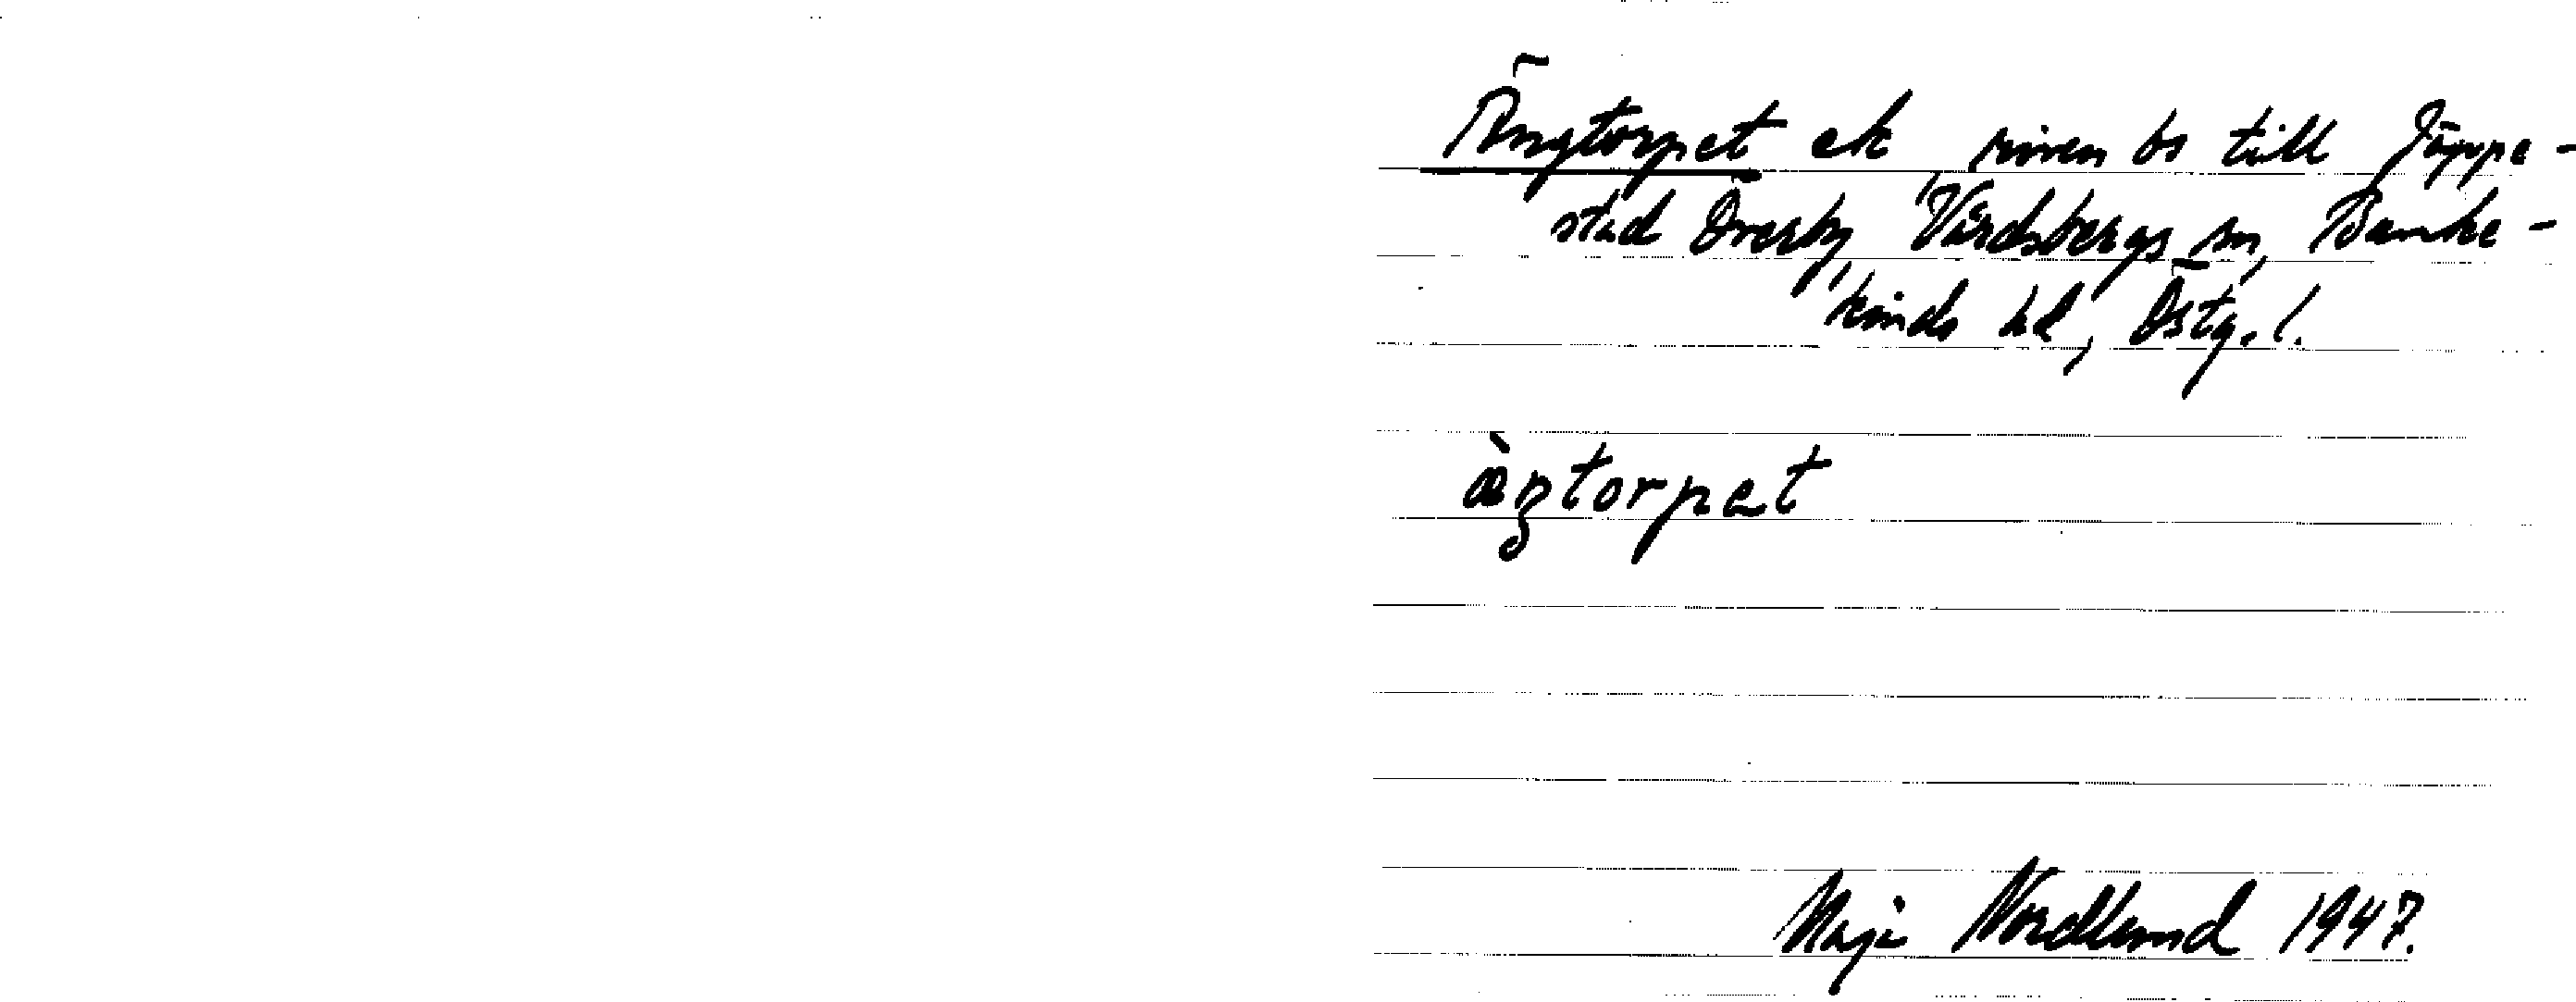 Ängtorpet ek riven bs till Jäppe-
stad Överby, Vårdsbergs sn, Banke-
kinds hd, Östg. l.
æ̀ŋtorpet
Maja Nordlund 1947.